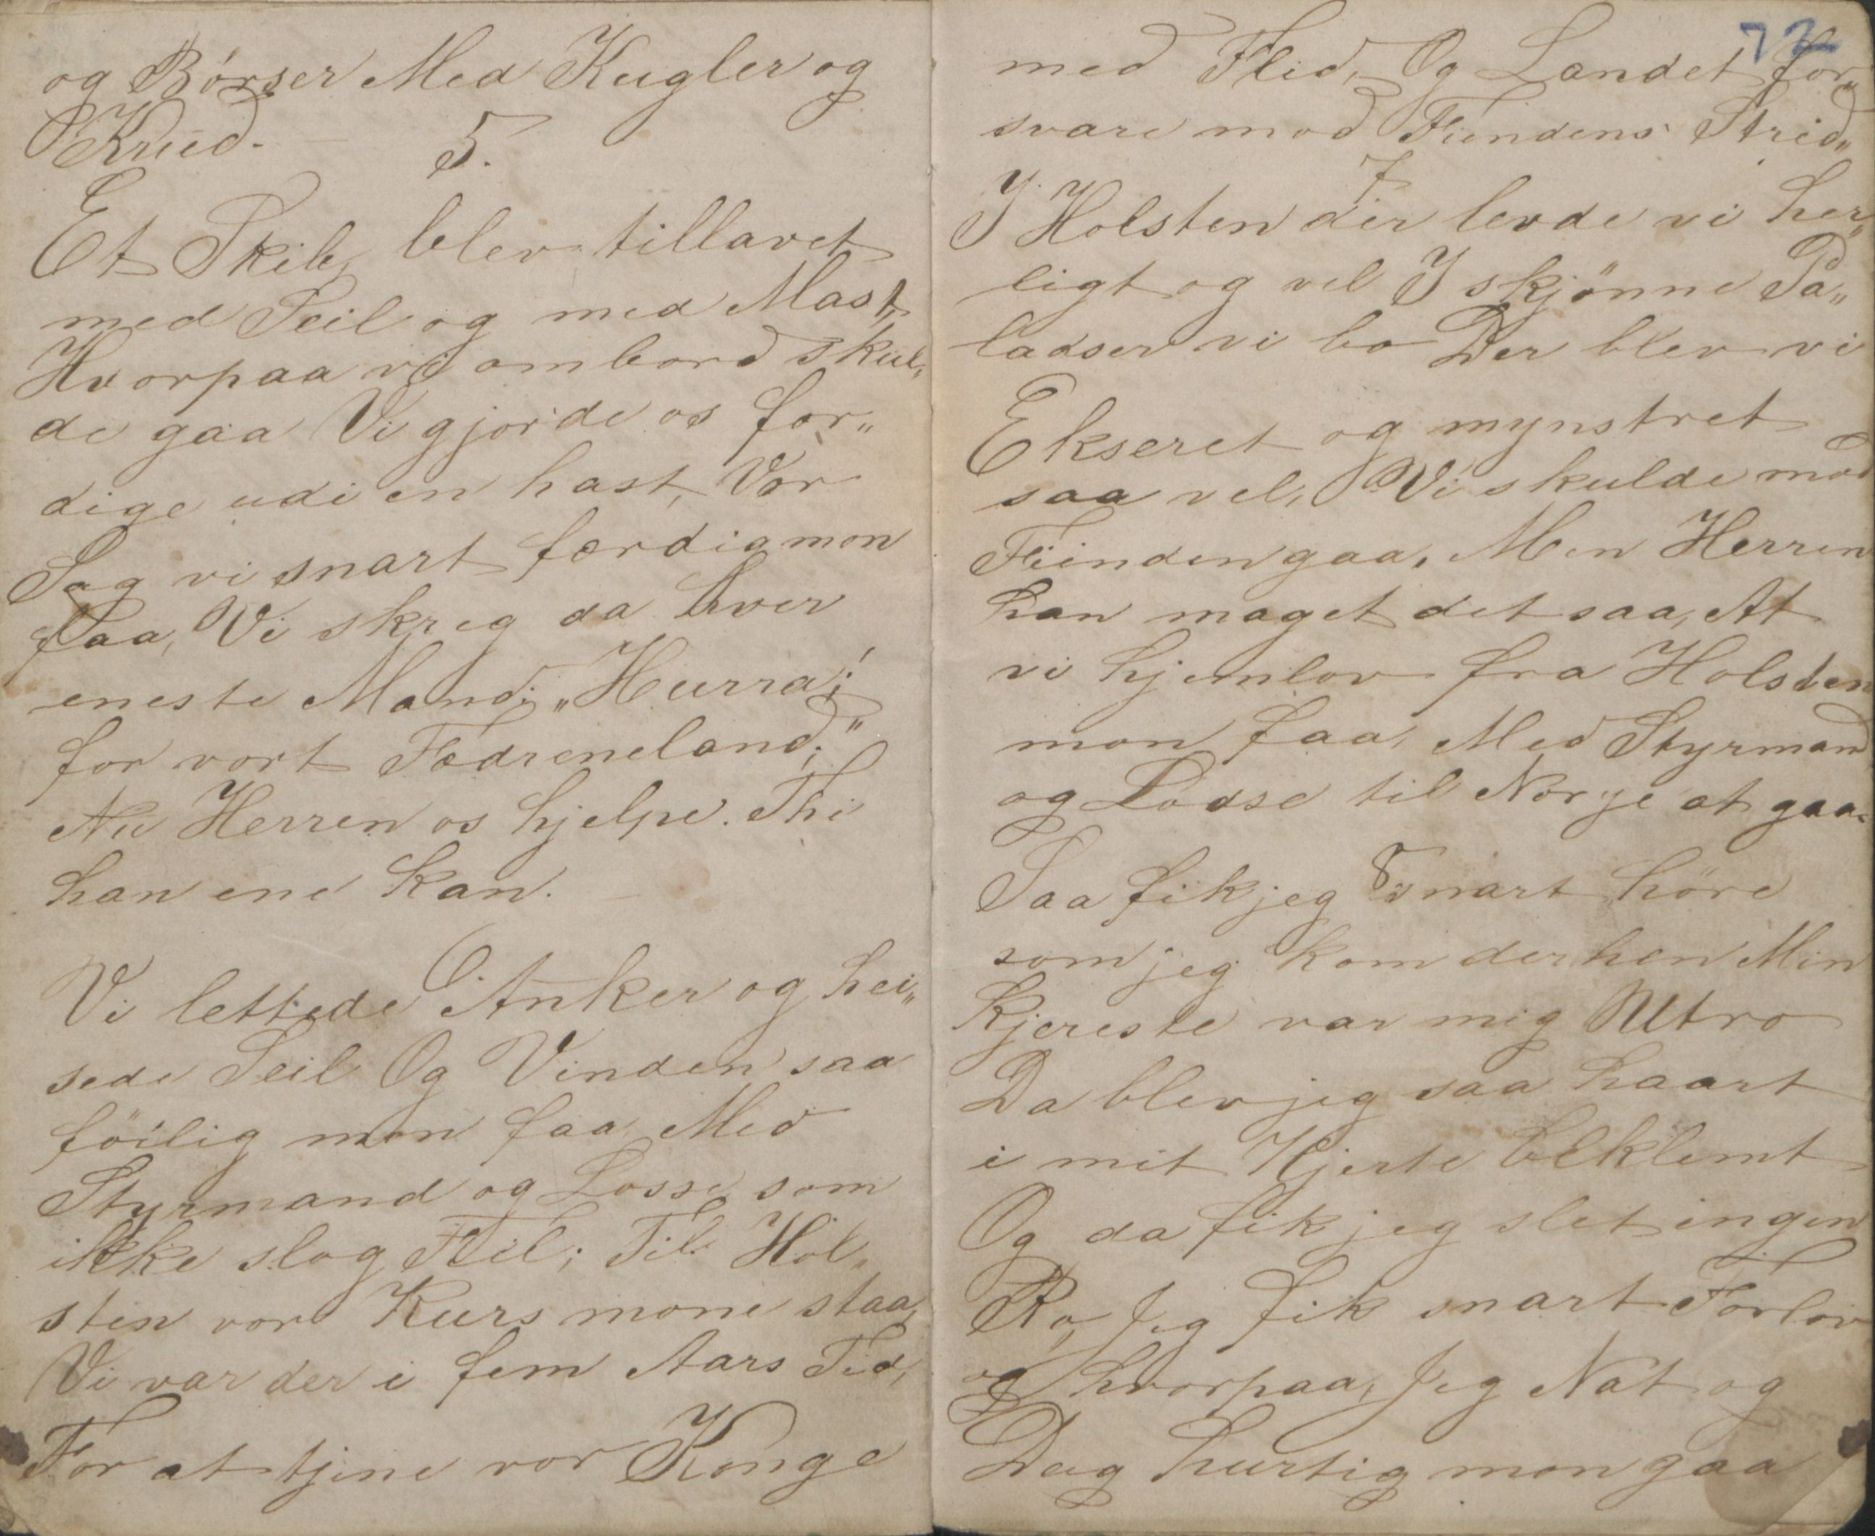 og Börser Med Kugler og
Krud.
5.
Et Skib, blev tillavet
med Seil og med Mast,
Hvorpaa vi ombord skul„
de gaa Vi gjorde os fær„
dige udi en hast, Vor
Sag vi snart færdig mon
faa, Vi skreg da hver
eneste Mand; „Hurra!
for vort Fædreneland;“
Nu Herren os hjelpe. Thi
han ene kan.
6.
Vi lettede Anker og hei„
sede Seil Og Vinden saa
föilig mon faa, Med
Styrmand og Losse, som
ikke slog Feil; Til Hol„
sten vor Kurs mone staa,
Vi var der i fem Aars Tid,
For at tjene vor Konge
72
med Flid, Og Landet for„
svare mod Fiendens Strid„
7
I Holsten der levde vi her„
ligt og vel I skjönne Pa„
ladser vi bo Der blev vi
Ekseret og mynstret
saa vel, Vi skulde mod
Fiinden gaa, Men Herren
han maget det saa, At
vi hjemlov fra Holsten
mon faa, Med Styrmand
og Lodse til Norge at gaa.
8
Saa fik jeg snart höre
som jeg kom derhen Min
Kjereste var mig Utro
Da blev jeg saa haart
i mit Hjerte beklemt
Og da fik jeg slet ingen
Ro, Jeg fik snart Forlov
og hvorpaa, Jeg Nat og
Dag hurtig mon gaa